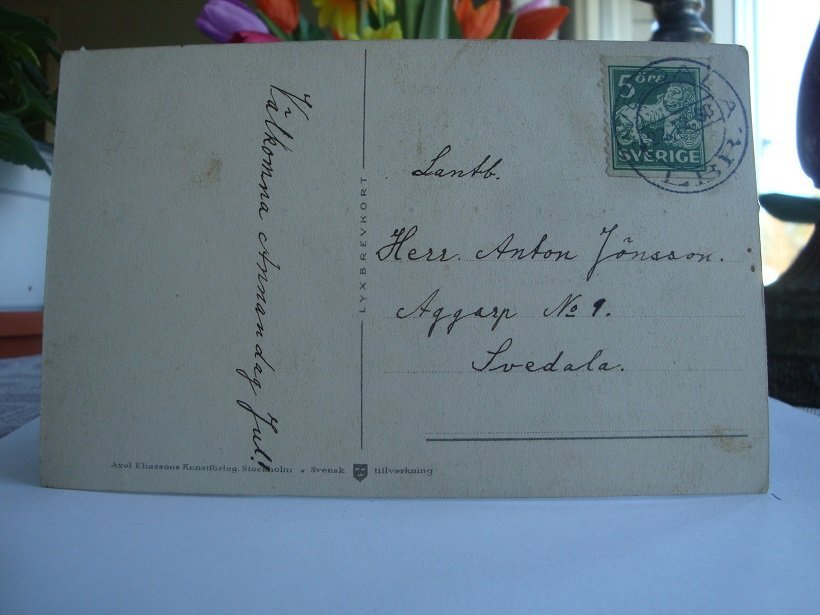 Välkomna Annandag Jul!
LYXBREVKORT
5 ÖRE
SVERIGE
LBR
Lantb.
Herr. Anton Jönsson.
Aggarp No 9.
Svedala.
Axel Eliassons Konstförlag, Stockholm • Svensk tillverkning